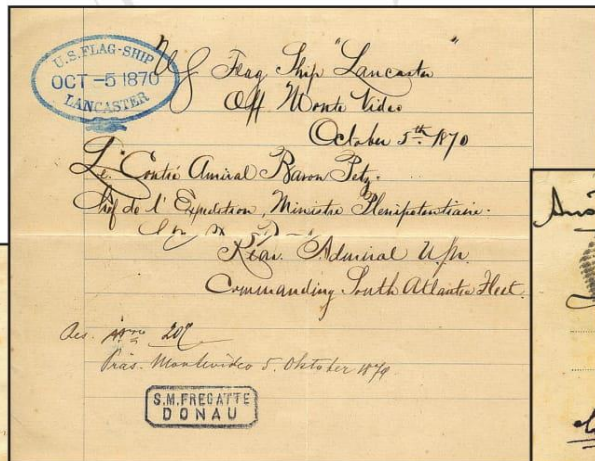 U.S. FLAG-SHIP
OCT -5 1870
LANCASTER
US Flag Ship "Lancaster"
Off Monte Video
October 5th 1870
Le Contre Amiral Baron Petz.
Chef de l'Expedition, Ministre Plenipotentiaire.
Rear Admiral
Commanding South Atlantic Fleet.
Res. 207
Präs. Montevideo 5. Oktober 1870.
S.M. FREGATTE
DONAU